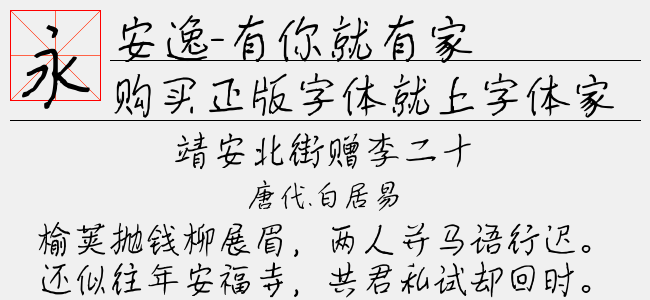 永
安逸-有你就有家
购买正版字体就上字体家
靖安北街赠李二十
唐代.白居易
榆荚抛钱柳展眉，两人并马语行迟。
还似往年安福寺，共君私试却回时。